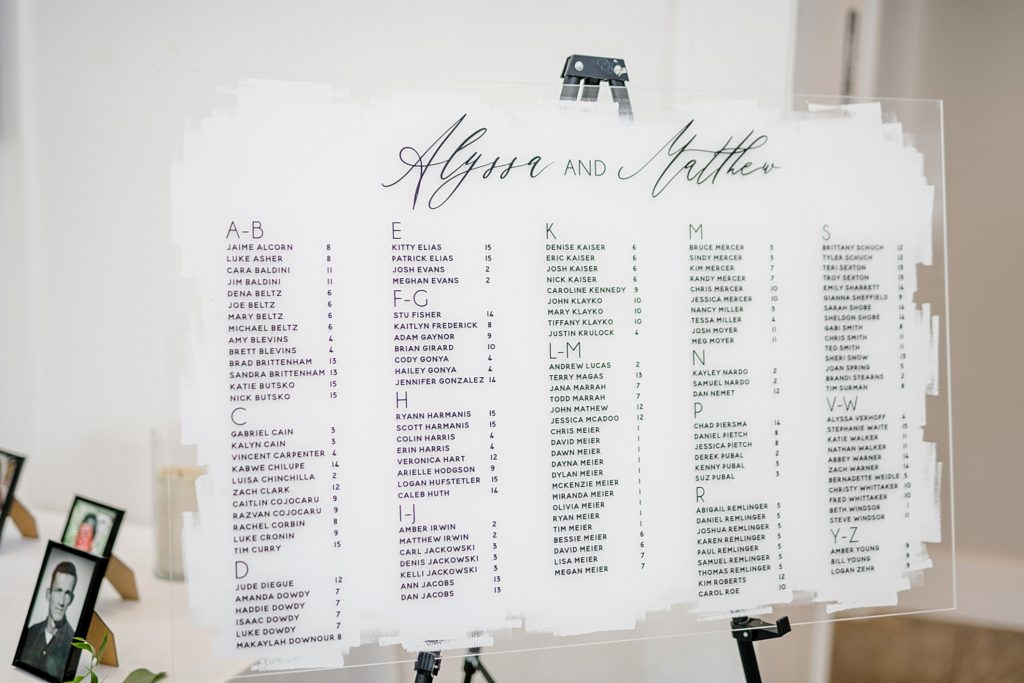 Alyssa AND Matthew
A-B
JAIME ALCORN 8
LUKE ASHER 8
CARA BALDINI 11
JIM BALDINI 11
DENA BELTZ 6
JOE BELTZ 6
MARY BELTZ 6
MICHAEL BELTZ 6
AMY BLEVINS 4
BRETT BLEVINS 4
BRAD BRITTENHAM 13
SANDRA BRITTENHAM 13
KATIE BUTSKO 15
NICK BUTSKO 15
C
GABRIEL CAIN 3
KALYN CAIN 3
VINCENT CARPENTER 4
KABWE CHILUPE 14
LUISA CHINCHILLA 2
ZACH CLARK 12
CAITLIN COJOCARU 9
RAZVAN COJOCARU 9
RACHEL CORBIN 8
LUKE CRONIN 9
TIM CURRY 15
D
JUDE DIEGUE 12
AMANDA DOWDY 7
HADDIE DOWDY 7
ISAAC DOWDY 7
LUKE DOWDY 7
MAKAYLAH DOWNOUR 8
E
KITTY ELIAS 15
PATRICK ELIAS 15
JOSH EVANS 2
MEGHAN EVANS 2
F-G
STU FISHER 14
KAITLYN FREDERICK 8
ADAM GAYNOR 9
BRIAN GIRARD 10
CODY GONYA 4
HAILEY GONYA 4
JENNIFER GONZALEZ 14
H
RYANN HARMANIS 15
SCOTT HARMANIS 15
COLIN HARRIS 4
ERIN HARRIS 4
VERONICA HART 12
ARIELLE HODGSON 9
LOGAN HUFSTETLER 15
CALEB HUTH 14
I-J
AMBER IRWIN 2
MATTHEW IRWIN 2
CARL JACKOWSKI 3
DENIS JACKOWSKI 3
KELLI JACKOWSKI 3
ANN JACOBS 13
DAN JACOBS 13
K
DENISE KAISER 6
ERIC KAISER 6
JOSH KAISER 6
NICK KAISER 6
CAROLINE KENNEDY 9
JOHN KLAYKO 10
MARY KLAYKO 10
TIFFANY KLAYKO 10
JUSTIN KRULOCK 4
L-M
ANDREW LUCAS 2
TERRY MAGAS 13
JANA MARRAH 7
TODD MARRAH 7
JOHN MATHEW 12
JESSICA MCADOO 12
CHRIS MEIER 1
DAVID MEIER 1
DAWN MEIER 1
DAYNA MEIER 1
DYLAN MEIER 1
MCKENZIE MEIER 1
MIRANDA MEIER 1
OLIVIA MEIER 1
RYAN MEIER 1
TIM MEIER 1
BESSIE MEIER 6
DAVID MEIER 6
LISA MEIER 7
MEGAN MEIER 7
M
BRUCE MERCER 3
SINDY MERCER 3
KIM MERCER 7
RANDY MERCER 7
CHRIS MERCER 10
JESSICA MERCER 10
NANCY MILLER 3
TESSA MILLER 4
JOSH MOYER 11
MEG MOYER 11
N
KAYLEY NARDO 2
SAMUEL NARDO 2
DAN NEMET 12
P
CHAD PIERSMA 14
DANIEL PIETCH 8
JESSICA PIETCH 8
DEREK PUBAL 2
KENNY PUBAL 3
SUZ PUBAL 3
R
ABIGAIL REMLINGER 5
DANIEL REMLINGER 5
JOSHUA REMLINGER 5
KAREN REMLINGER 5
PAUL REMLINGER 5
SAMUEL REMLINGER 5
THOMAS REMLINGER 5
KIM ROBERTS 12
CAROL ROE 10
S
BRITTANY SCHUCH 12
TYLER SCHUCH 12
TERI SEXTON 13
TROY SEXTON 13
EMILY SHARRETT 14
GIANNA SHEFFIELD 9
SARAH SHOBE 14
SHELDON SHOBE 14
GABI SMITH 8
CHRIS SMITH 11
TED SMITH 11
SHERI SNOW 13
JOAN SPRING 5
BRANDI STEARNS 2
TIM SURMAN 8
V-W
ALYSSA VERHOFF 4
STEPHANIE WAITE 15
KATIE WALKER 11
NATHAN WALKER 11
ABBEY WARNER 14
ZACH WARNER 14
BERNADETTE WEIGLE 5
CHRISTY WHITTAKER 10
FRED WHITTAKER 10
BETH WINDSOR 11
STEVE WINDSOR 11
Y-Z
AMBER YOUNG 9
BILL YOUNG 9
LOGAN ZEHR